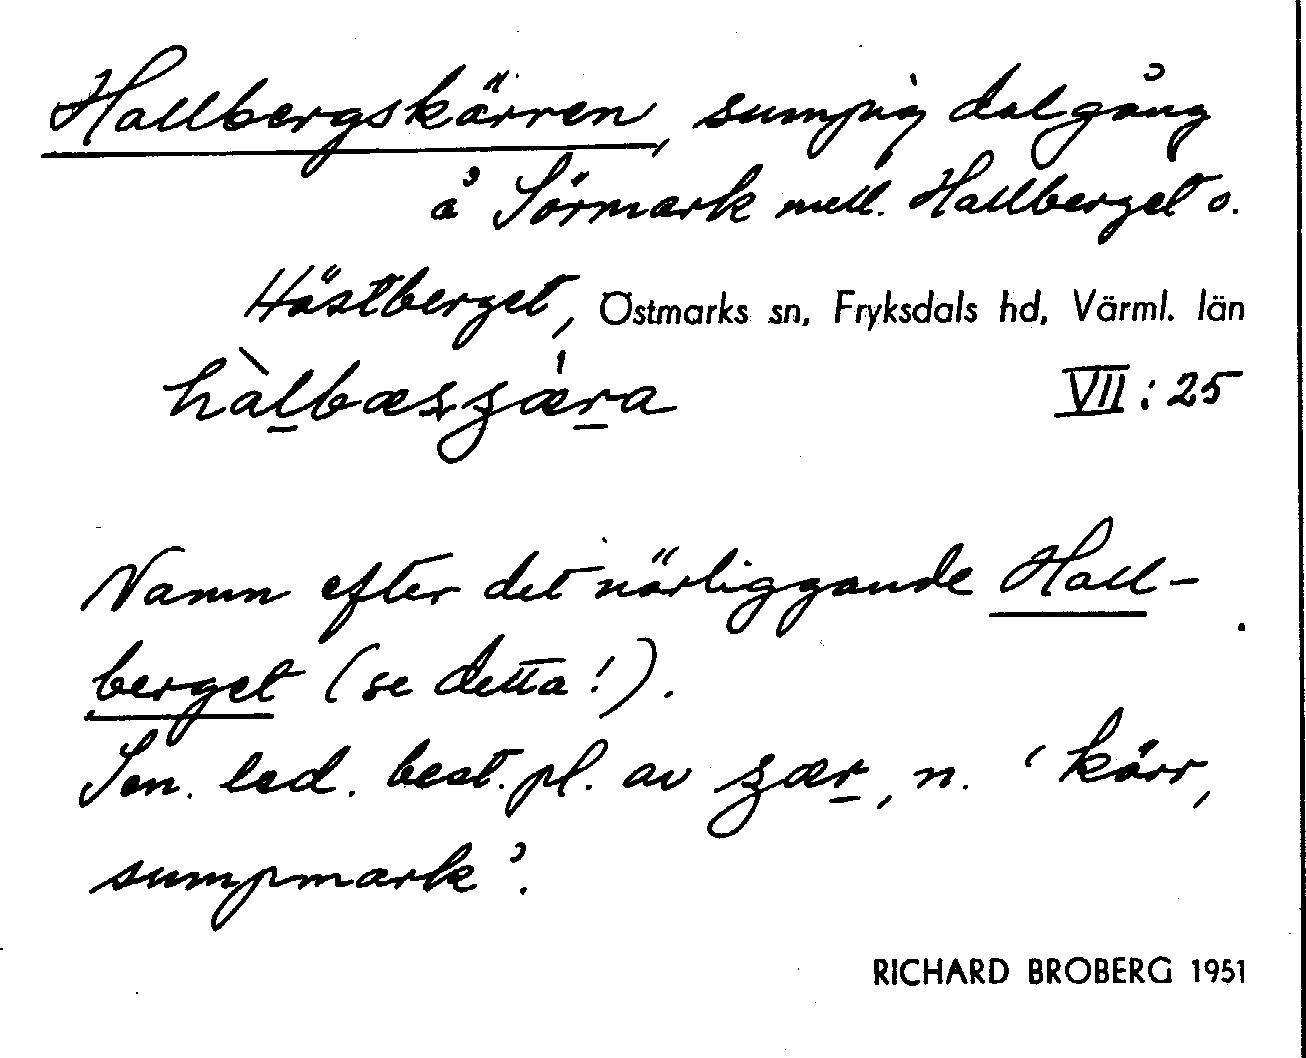 Hallbergskärren, sumpig dalgång
å Sörmark mell. Hallberget o.
Hästberget, Östmarks sn, Fryksdals hd, Värml. län
VII: 25
Namn efter det närliggande Hall-
berget (se detta!).
Sen. led. best. pl. av , n. 'kärr,
sumpmark'.
RICHARD BROBERG 1951